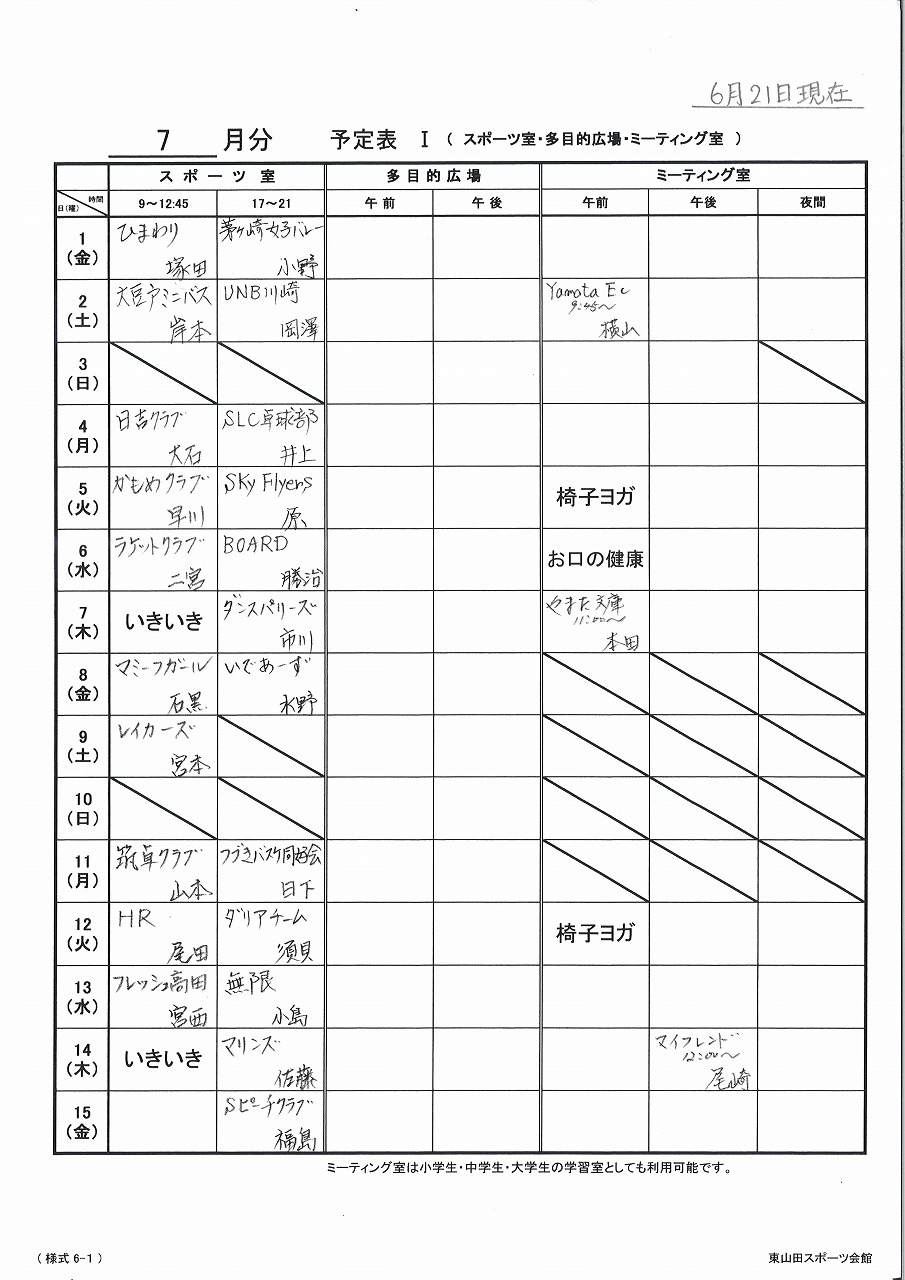 6月21日現在
7 月分 予定表 Ⅰ （ スポーツ室・多目的広場・ミーティング室 ）
スポーツ室 多目的広場 ミーティング室
日(曜) 時間 9～12:45 17～21 午前 午後 午前 午後 夜間
1 (金) ひまわり 塚田 茅ヶ崎女子バレー 小野
2 (土) 大豆戸ミニバス 岸本 UNB川崎 岡澤 Yamata Ec 9:45～ 横山
3 (日)
4 (月) 日吉クラブ 大石 SLC卓球部 井上
5 (火) かもめクラブ 早川 Sky Flyers 原 椅子ヨガ
6 (水) ラケットクラブ 二宮 BOARD 勝治 お口の健康
7 (木) いきいき ダンスパリーズ 市川 やまた文庫 11:00～ 本田
8 (金) マミーフガール 石黒 いであーず 水野
9 (土) レイカーズ 宮本
10 (日)
11 (月) 筑卓クラブ 山本 つづきバスケ同好会 日下
12 (火) HR 尾田 ダリアチーム 須貝 椅子ヨガ
13 (水) フレッシュ高田 宮西 無限 小島
14 (木) いきいき マリンズ 佐藤 マイフレンド 12:00～ 尾崎
15 (金) Sピーチクラブ 福島
ミーティング室は小学生・中学生・大学生の学習室としても利用可能です。
（様式 6-1） 東山田スポーツ会館